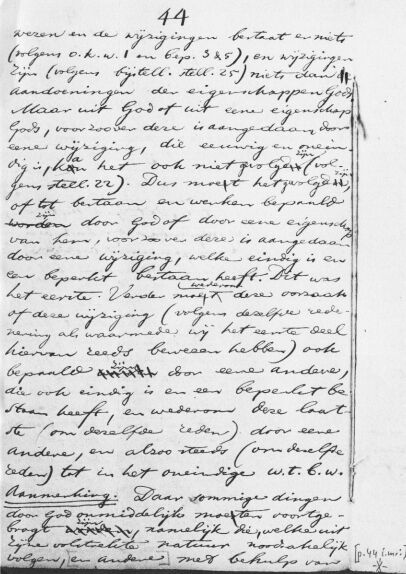 44
wezen en de wijzigingen bestaat er niets
(volgens o.k.w. 1 en bep. 3 & 5), en wijzigingen
zijn (volgens bijstell. stell. 25) niets dan
aandoeningen der eigenschappen Gods.
Maar uit God of uit eene eigenschap
Gods, voor zoover deze is aangedaan door
eene wijziging, die eeuwig en onein-
dig is, kan het ook niet gevolgd zijn (vol-
gens stell. 22). Dus moet het gevolgd zijn
of tot bestaan en werken bepaald
zijn door God of door eene eigenschap
van hem, voor zoover deze is aangedaan
door eene wijziging, welke eindig is en
een beperkt bestaan heeft. Dit was
het eerste. Verder moet wederom deze oorzaak
of deze wijziging (volgens dezelfde rede-
nering als waarmede wij het eerste deel
hiervan reeds bewezen hebben) ook
bepaald zijn door eene andere,
die ook eindig is en een beperkt be-
staan heeft, en wederom deze laat-
ste (om dezelfde reden) door eene
andere, en alzoo steeds (om dezelfde
reden) tot in het oneindige w.t.b.w.
Aanmerking. Daar sommige dingen
door God onmiddelijk moeten voortge-
bragt zijn, namelijk die, welke uit
zijne volstrekte natuur noodzakelijk
volgen, en andere] met behulp van
[p. 44 i.m.:]